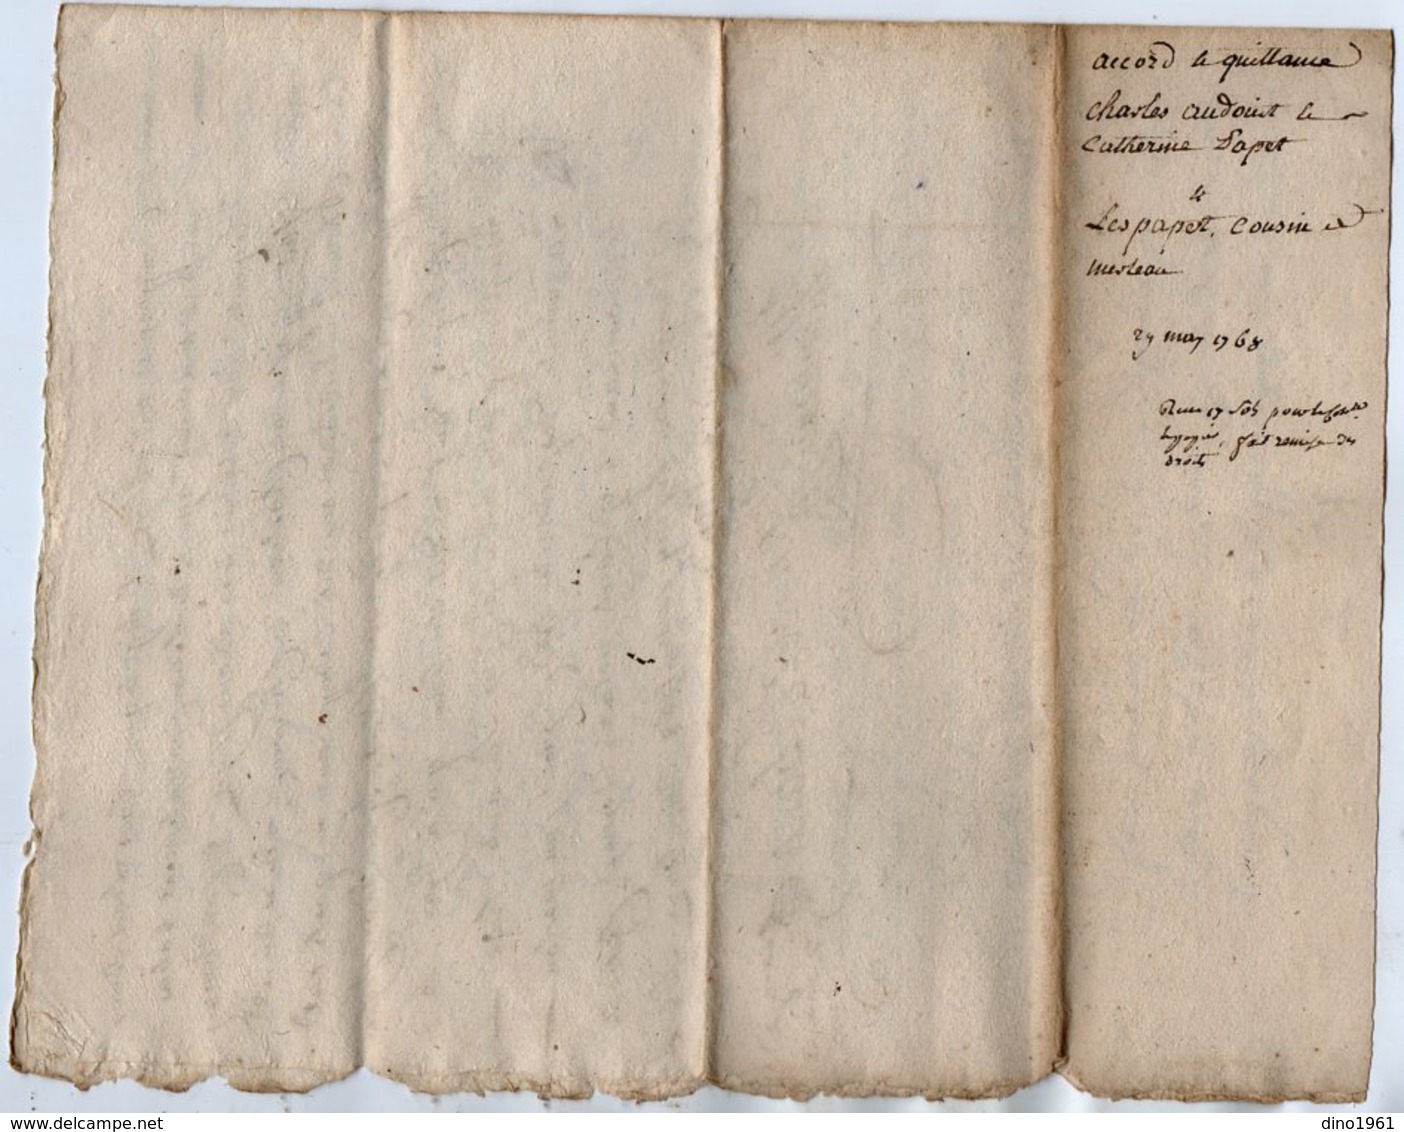 accord & quittance
Charles audouit &
Catherine Papet
&
Les papet, Cousin et
mesleau
27 may 1768
17 sols pour le
fait remise des
droits
delcampe.net
dino1961